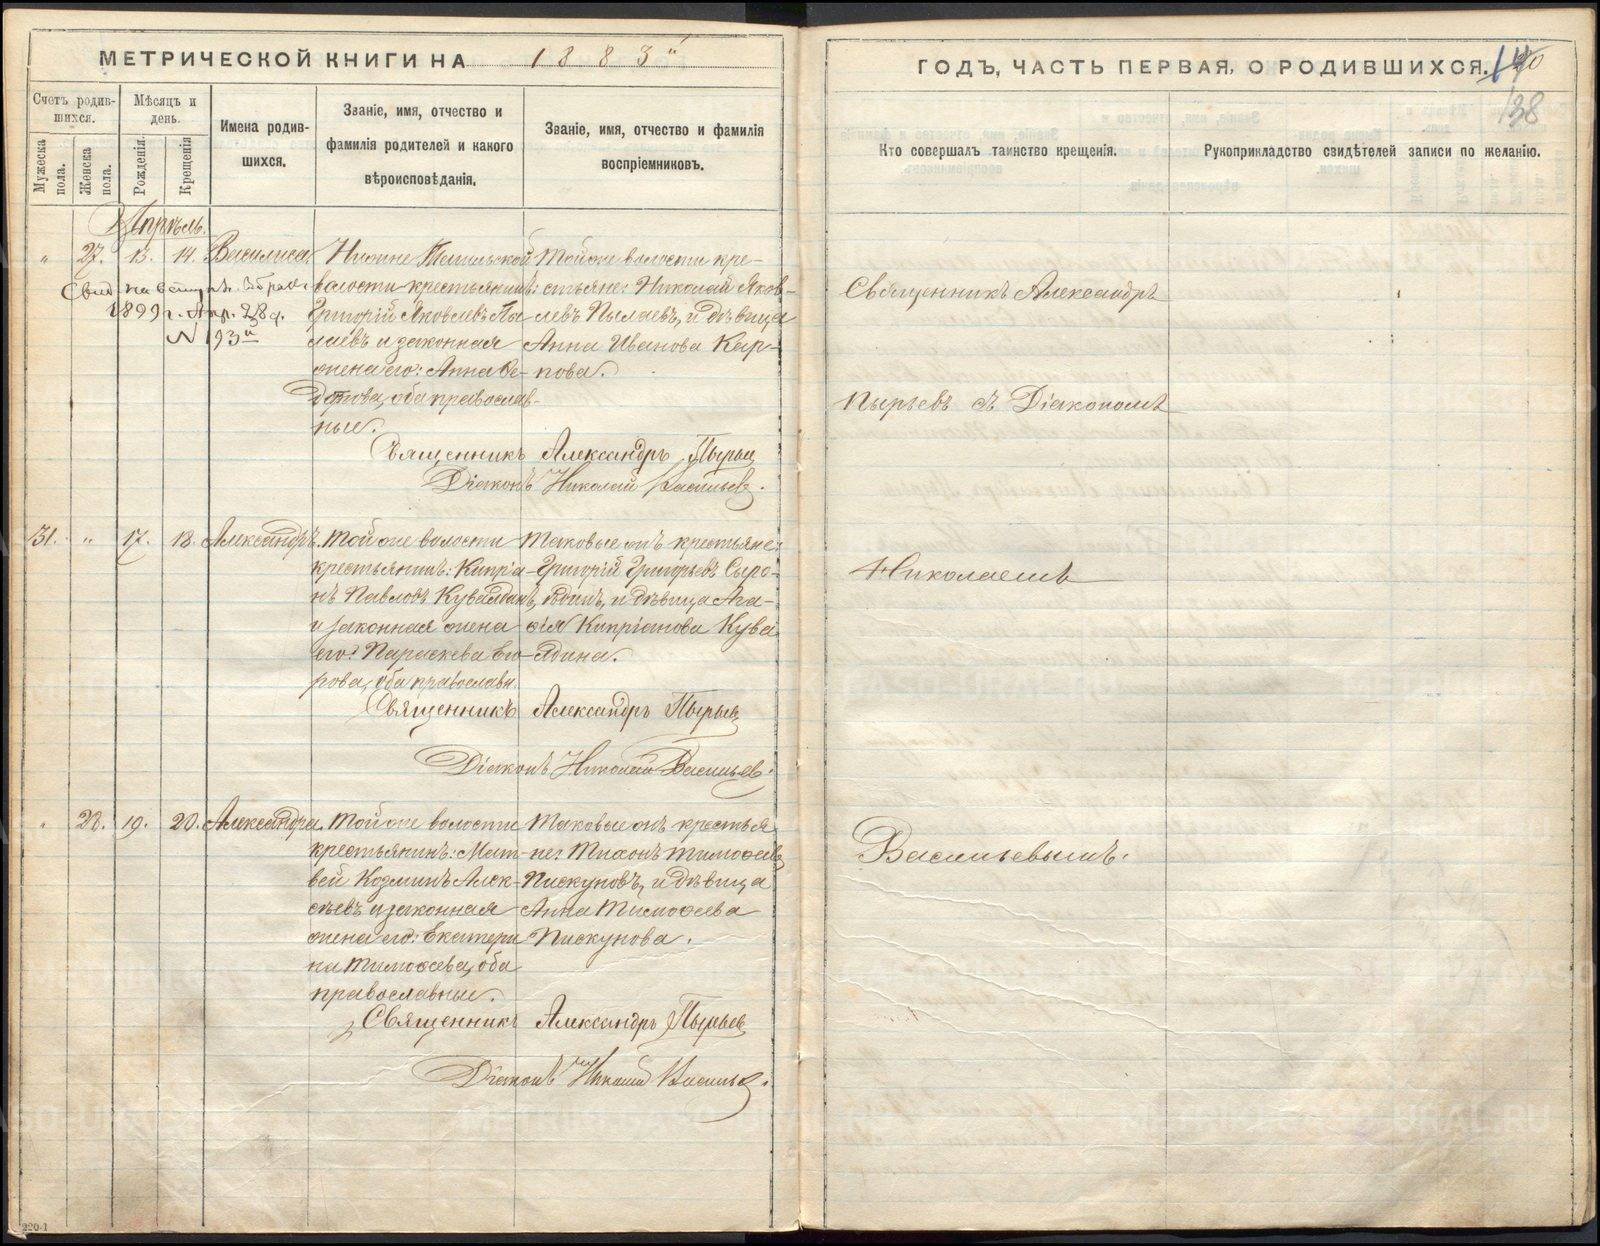 МЕТРИЧЕСКОЙ КНИГИ НА 1883й
Счетъ родив-
шихся.
Мужеска
пола.
Женска
пола.
Мѣсяцъ и
день.
Рожденія.
Крещенія
Имена родив-
шихся.
Званіе, имя, отчество и
фамилія родителей и какого
вѣроисповѣданія.
Званіе, имя, отчество и фамилія
воспріемниковъ.
Апрѣль.
„ 27. 13. 14. Василиса
на
1899 г. Апр. 28 д.
N 193
Нижне Тагильской
волости крестьянинъ:
Григорій Яковлевъ Пы-
лаевъ и законная
жена его: Анна Ѳе-
дотова, оба православ-
ные.
Той же волости кре-
стьяне: Николай Яков-
левъ Пылаевъ, и дѣвица
Анна Иванова Кар-
пова.
Священникъ Александръ Пырьев
Діаконъ Николай Васильев.
31. „ 17. 18. Александръ.
Той же волости
крестьянинъ: Кипріа-
нъ Павловъ Кувалдинъ,
и законная жена
его: Параскева Его-
рова, оба православн.
Таковые жъ крестьяне:
Григорій Григорьевъ
и дѣвица Ага-
ѳія Кипріанова Кува-
лдина.
Священникъ Александръ Пырьев
Діаконъ Николай Васильев.
„ 28. 19. 20. Александра.
Той же волости
крестьянинъ: Мат-
вей Козминъ Алек-
сѣевъ и законная
жена его: Екатери
на Тимоѳева, оба
православные.
Таковые жъ крестья
не: Тихонъ Тимоѳеевъ
Пискуновъ, и дѣвица
Анна Тимоѳеева
Пискунова.
Священникъ Александръ Пырьев
Діаконъ Николай Васильев.
220-1
ГОДЪ, ЧАСТЬ ПЕРВАЯ, О РОДИВШИХСЯ.
138
Кто совершалъ таинство крещенія.
Рукоприкладство свидѣтелей записи по желанію.
Священникъ Александръ
Пырьевъ съ Діакономъ
Николаемъ
Васильевымъ.